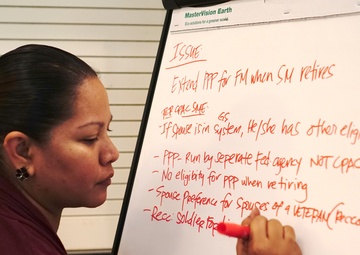 MasterVision Earth
ISSUE
Extend PPP for FM when SM retires
PER CPAC SME
GS
- If spouse is in system, He/she has other elig
- PPP - Run by seperate Fed agency NOT CPAC
- No eligibility for PPP when retiring
- Spouse Preference for Spouses of a VETERAN
- Recc Soldier For